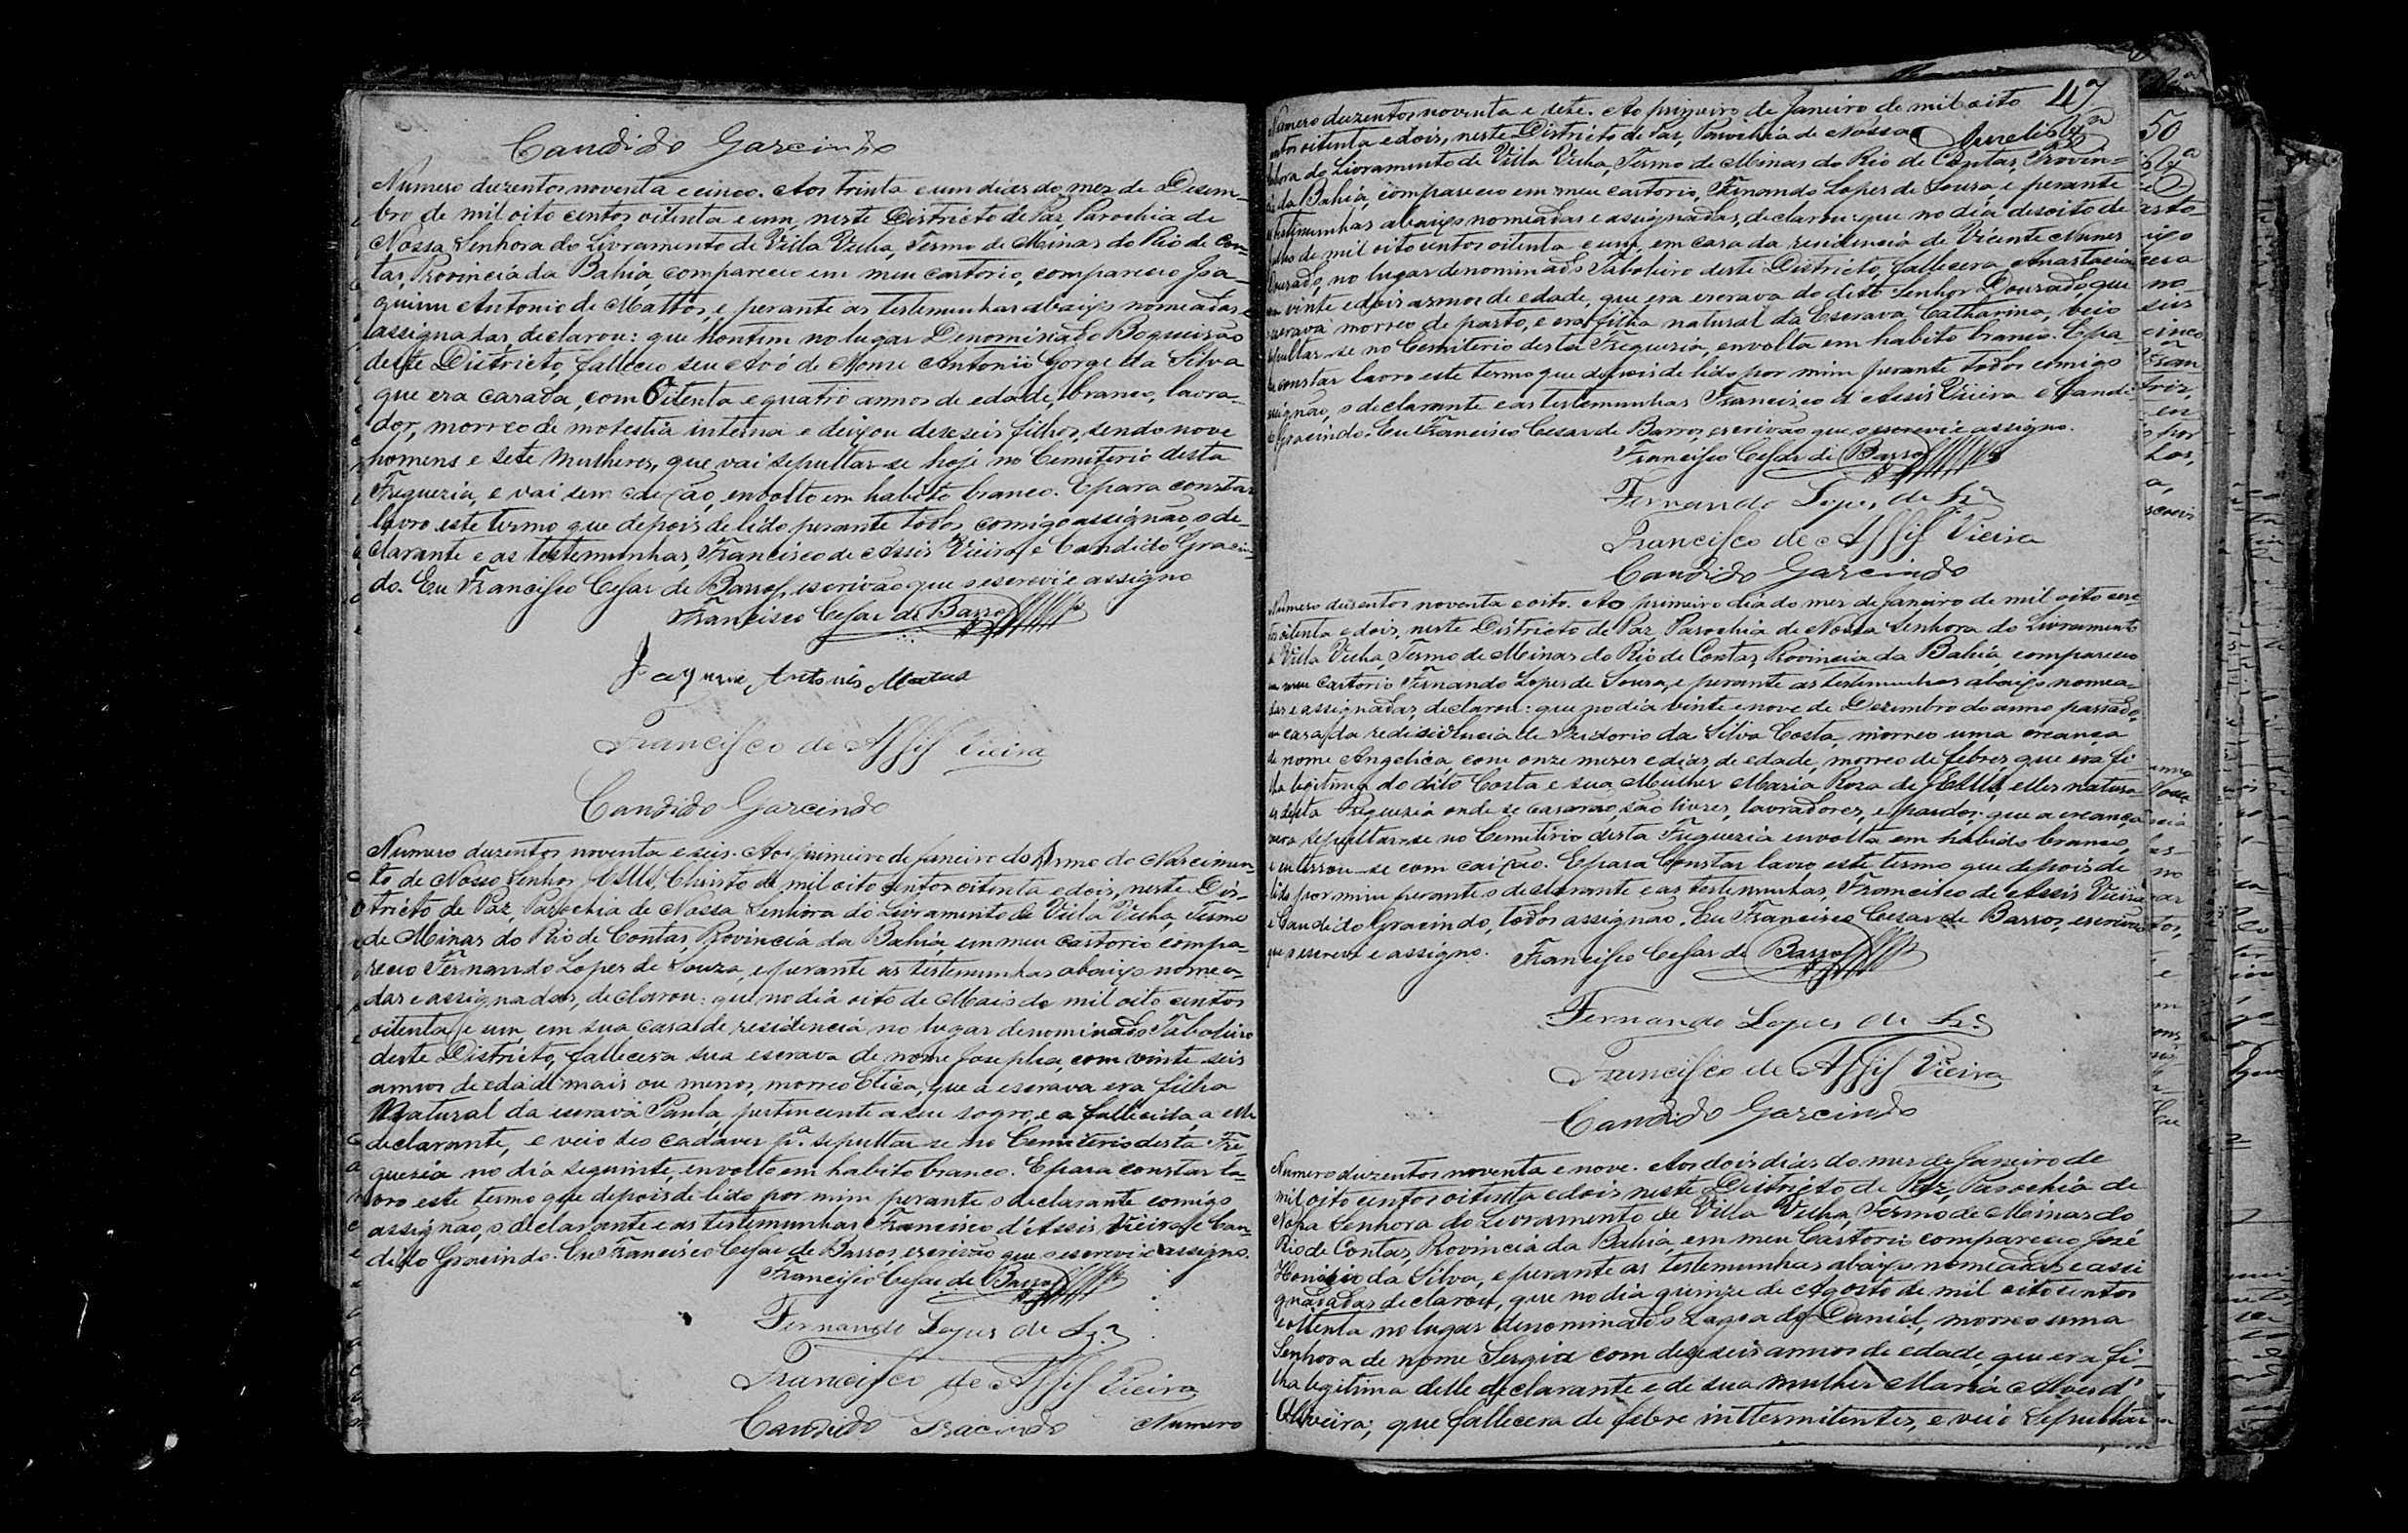 Candido Garcindo
Numero duzentos noventa e cinco. Aos trinta e um dias do mez de Desem-
bro de mil oito centos oitenta e um, neste Districto de Paz, Parochia de
Nossa Senhora do Livramento de Villa Velha, Termo de Minas do Rio de Con-
tas, Provincia da Bahia, compareceo em meu cartorio, compareceo Joa-
quim Antonio de Mattos, e perante as testemunhas abaixo nomeadas e
assignadas, declarou: que hontem no lugar Denominado Boqueirão
deste Districto, falleceo seu Avô de Nome Antonio Gorge da Silva
que era casada, com Oitenta e quatro annos de edade, branco, lavra-
dor, morreo de molestia interna e deixou deseseis filhos, sendo nove
homens e sete Mulheres, que vai sepultar-se hoje no Cemiterio desta
Freguezia, e vai sem caixão, envolto em habito branco. E para constar
lavro este termo que depois de lido perante todos comigo assignão, o de-
clarante e as testemunhas, Francisco de Assis Vieira, e Candido Gracin-
do. Eu Francisco Cesar de Barros, escrivão que o escrevi e assigno
Francisco Cesar de Barros
Joaquim Antonio Matus
Francisco de Assis Vieira
Candido Garcindo
Numero duzentos noventa e seis. Aos primeiro de Janeiro do Anno do Nascimen-
to de Nosso Senhor JESUS Christo de mil oito centos oitenta e dois, neste Dis-
tricto de Paz, Parochia de Nossa Senhora do Livramento de Villa Velha, Termo
de Minas do Rio de Contas, Provincia da Bahia, em meu cartorio compa-
receo Fernando Lopes de Souza, e perante as testemunhas abaixo nomea-
das e assignadas, declarou: que no dia oito de Maio de mil oito centos
oitenta e um em sua casa de residencia no lugar denominado Taboleiro
deste Districto, fallecera sua escrava de nome Josepha, com vinte seis
annos de edade mais ou menos, morreo Etica, que a escrava era filha
Natural da escrava Paula, pertencente a seu sogro, e a fallecida, a elle
declarante, e veio seo cadaver pª. sepultar-se no Cemiterio desta Fre-
guezia no dia seguinte, envolto em habito branco. E para constar la-
vro este termo que depois de lido por mim perante o declarante comigo
assignão, o declarante e as testemunhas Francisco d'Assis Vieira, e Can-
dido Gracindo. Eu Francisco Cesar de Barros, escrivão que o escrevi e assigno.
Francisco Cesar de Barros
Fernando Lopes de Sza
Francisco de Assis Vieira
Candido Gracindo Numero
47
Numero duzentos noventa e sete. Ao primeiro de Janeiro de mil oito
centos oitenta e dois, neste Districto de Paz, Parochia de Nossa
Senhora do Livramento de Villa Velha, Termo de Minas do Rio de Contas, Provin-
cia da Bahia, compareceo em meu cartorio, Fernando Lopes de Souza, e perante
as testemunhas abaixo nomeadas e assignadas, declarou: que no dia desoito de
de mil oito centos oitenta e um, em casa da residencia de Vicente Nunes
Dourado, no lugar denominado Taboleiro deste Districto, fallecera Anastacia
vinte e dois annos de edade, que era escrava do dito Senhor Dourado, que
escrava morreo de parto, e era filha natural da Escrava Catharina, veio
sepultar-se no Cemiterio desta Freguezia, envolta em habito branco. E pa-
ra constar lavro este termo que depois de lido por mim perante todos comigo
assignão, o declarante e as testemunhas Francisco d'Assis Vieira e Candi-
do Gracindo. Eu Francisco Cesar de Barros, escrivão que o escrevi e assigno.
Francisco Cesar de Barros
Fernando Lopes de Sza
Francisco de Assis Vieira
Candido Garcindo
Numero duzentos noventa e oito. Ao primeiro dia do mez de Janeiro de mil oito cen-
tos oitenta e dois, neste Districto de Paz, Parochia de Nossa Senhora do Livramento
de Villa Velha, Termo de Minas do Rio de Contas, Provincia da Bahia, compareceo
em meu cartorio Fernando Lopes de Souza, e perante as testemunhas abaixo nomea-
das e assignadas, declarou: que no dia vinte e nove de Dezembro do anno passado,
em casa da residencia de da Silva Costa, morreo uma creança
de nome Angelica, com onze mezes e dias de edade, morreo de febres, que era fi-
lha legitima do dito Costa e sua Mulher Maria Roza de JESUS, elles natura-
es desta Freguezia onde se casarão, são livres, lavradores, e pardos, que a creança
veio sepultar-se no Cemitirio desta Freguezia envolta em habido branco,
e enterrou-se com caixão. E para Constar lavro este termo que depois de
lido por mim perante o declarante e as testemunhas, Francisco de Assis Vieira
e Candido Gracindo, todos assignão. Eu Francisco Cesar de Barros, escrivão
que o escrevi e assigno. Francisco Cesar de Barros
Fernando Lopes de Sza
Francisco de Assis Vieira
Candido Garcindo
Numero duzentos noventa e nove. Aos dois dias do mez de Janeiro de
mil oito centos oitenta e dois neste Districto de Paz, Parochia de
Nossa Senhora do Livramento de Villa Velha, Termo de Minas do
Rio de Contas, Provincia da Bahia, em meu Cartorio compareceo José
Honorio da Silva, e perante as testemunhas abaixo nomeadas e assi
gnadas declarou, que no dia quinze de Agosto de mil oito centos
e oitenta no lugar denominado Lagoa do Daniel, morreo uma
Senhora de nome Sergia com deseseis annos de edade, que era fi-
lha legitima delle declarante e de sua mulher Maria Alves d'
Oliveira; que fallecera de febre inttermitentes, e veio Sepultar
50